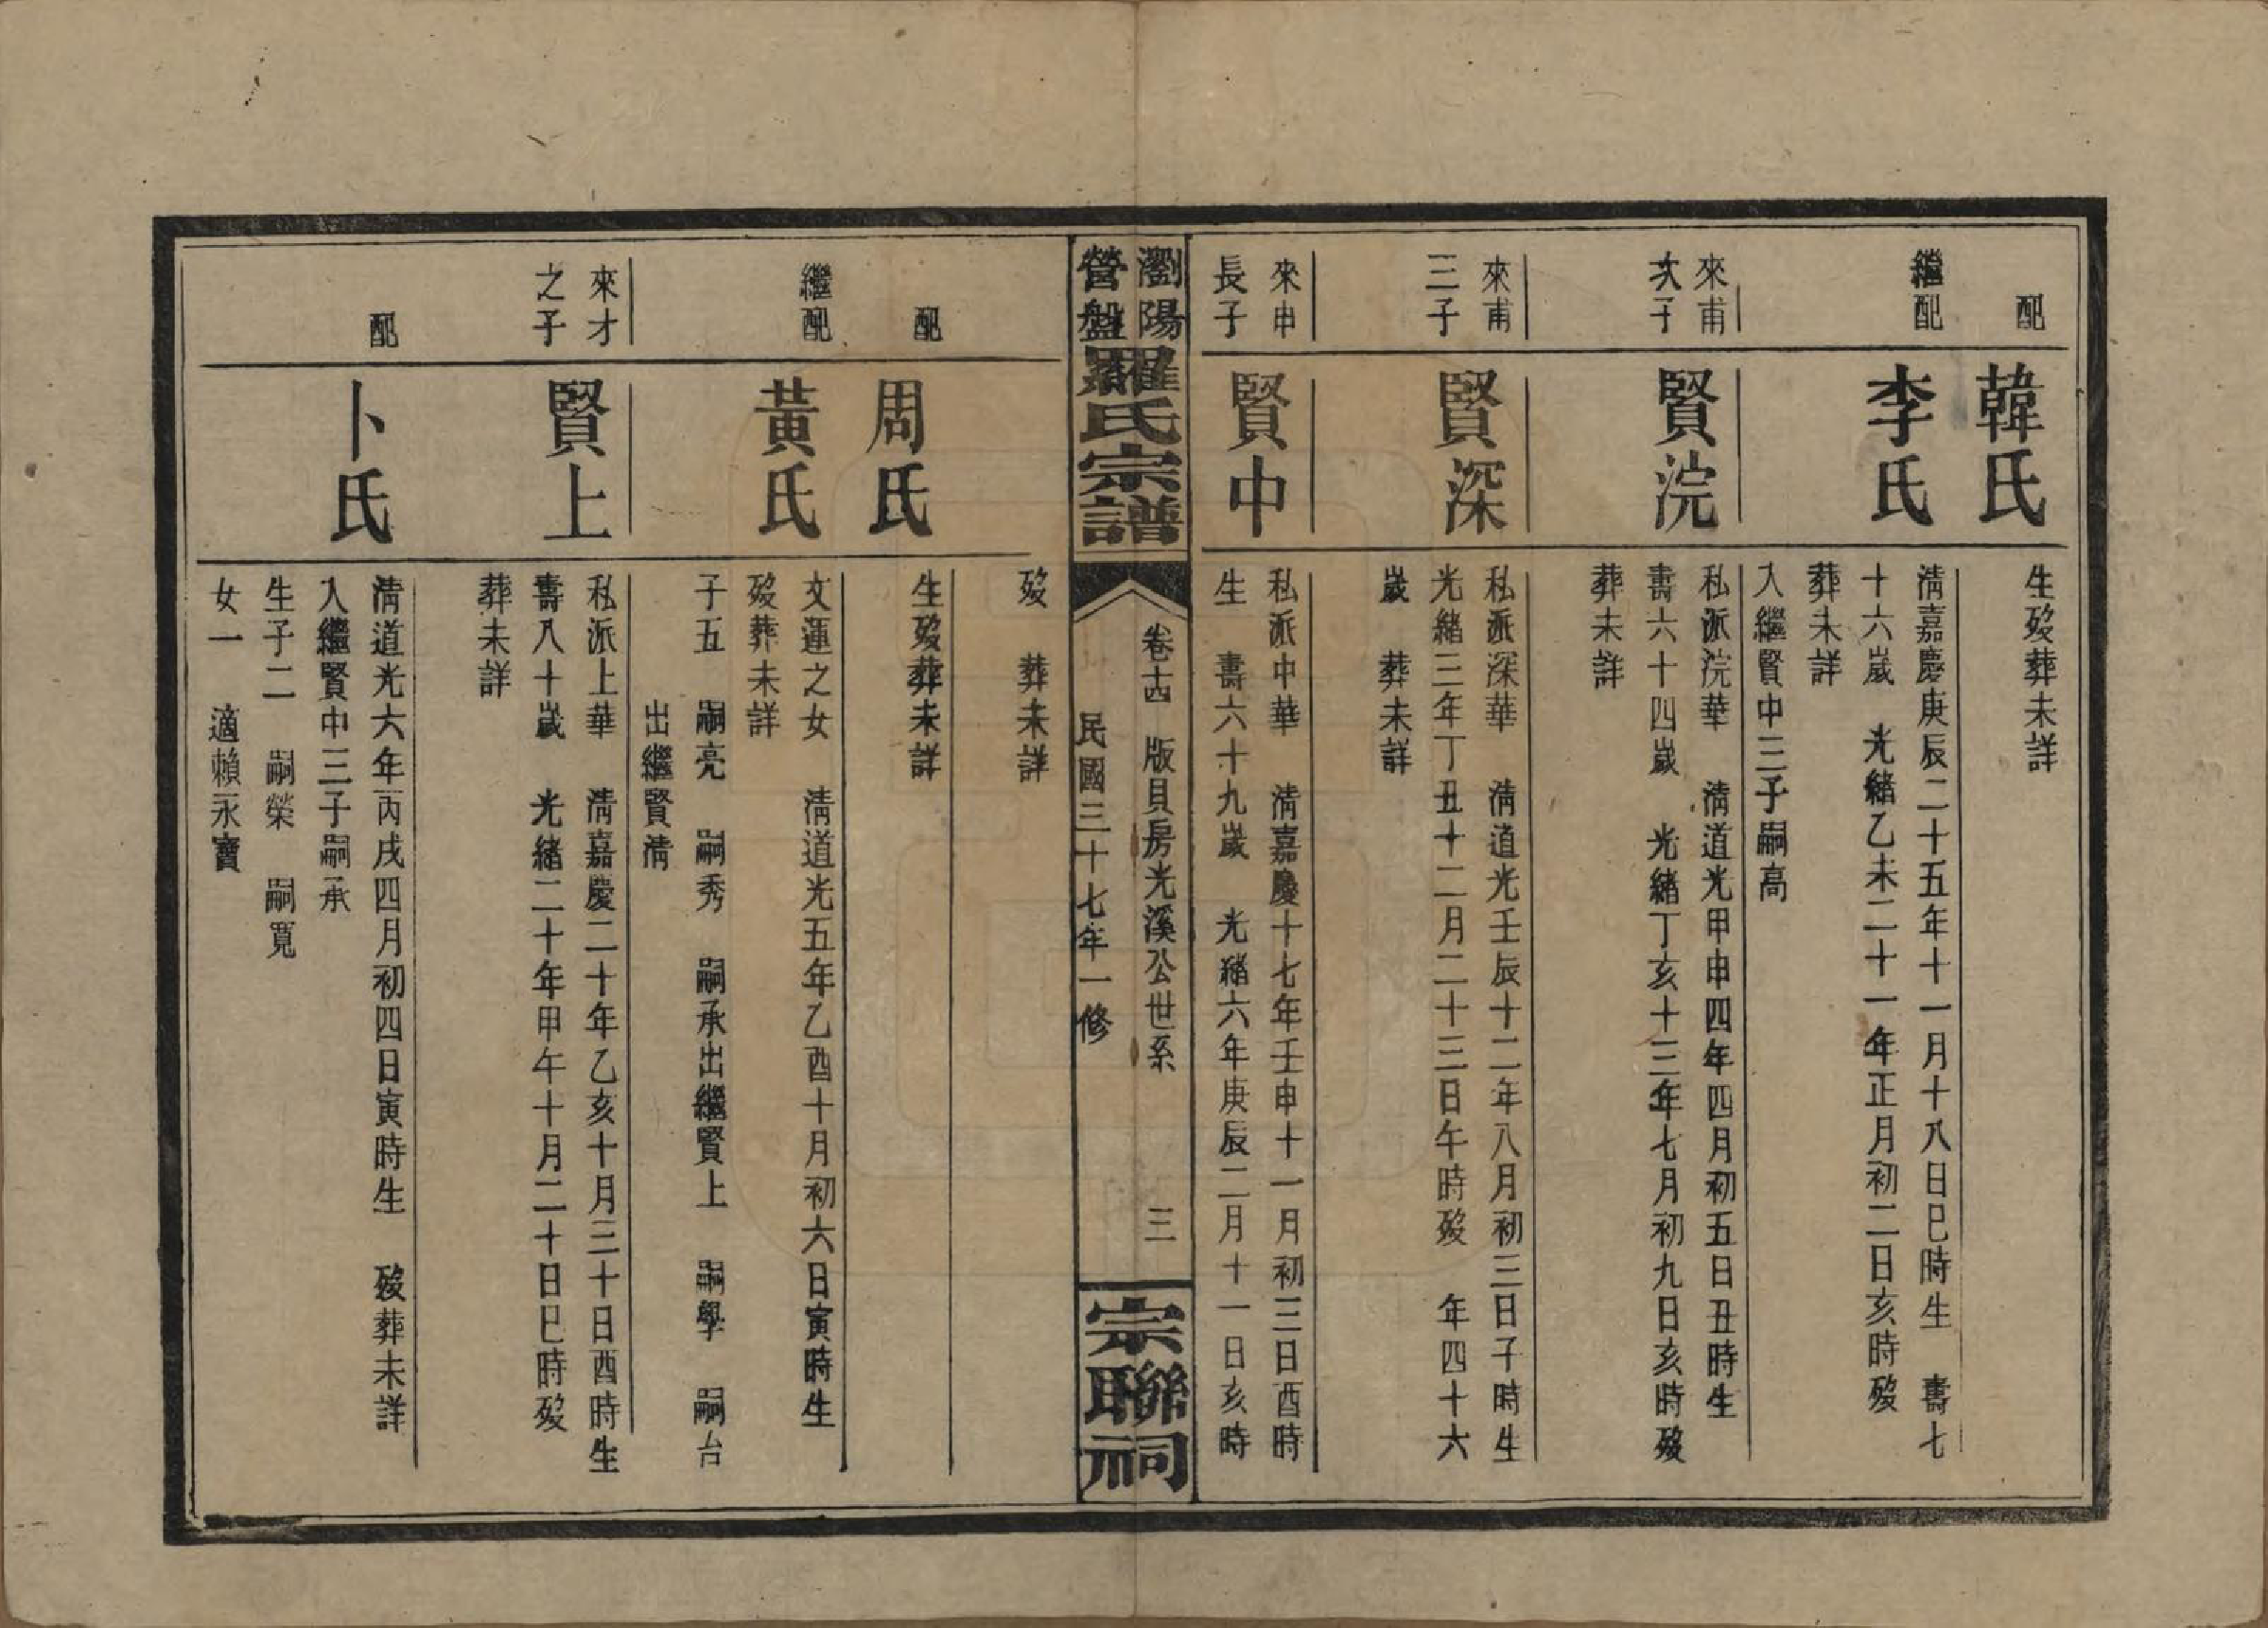 配
韓氏
生殁葬未詳
繼配
李氏
清嘉慶庚辰二十五年十一月十八日巳時生 壽七
十六歲 光緒乙未二十一年正月初二日亥時殁
葬未詳
入繼賢中三子嗣高
來甫
次子
賢浣
私派浣華 清道光甲申四年四月初五日丑時生
壽六十四歲 光緒丁亥十三年七月初九日亥時殁
葬未詳
來甫
三子
賢深
私派深華 清道光壬辰十二年八月初三日子時生
光緒三年丁丑十二月二十三日午時殁 年四十六
歲 葬未詳
來申
長子
賢中
私派中華 清嘉慶十七年壬申十一月初三日酉時
生 壽六十九歲 光緒六年庚辰二月十一日亥時
瀏陽
營盤
羅氏宗譜
卷十四 版貝房光溪公世系 三
民國三十七年一修
宗聯祠
殁 葬未詳
配
周氏
生殁葬未詳
繼配
黃氏
文運之女 清道光五年乙酉十月初六日寅時生
殁葬未詳
子五 嗣亮 嗣秀 嗣承出繼賢上 嗣學 嗣台
出繼賢清
來才
之子
賢上
私派上華 清嘉慶二十年乙亥十月三十日酉時生
壽八十歲 光緒二十年甲午十月二十日巳時殁
葬未詳
配
卜氏
清道光六年丙戌四月初四日寅時生 殁葬未詳
入繼賢中三子嗣承
生子二 嗣榮 嗣寬
女一 適賴永寶